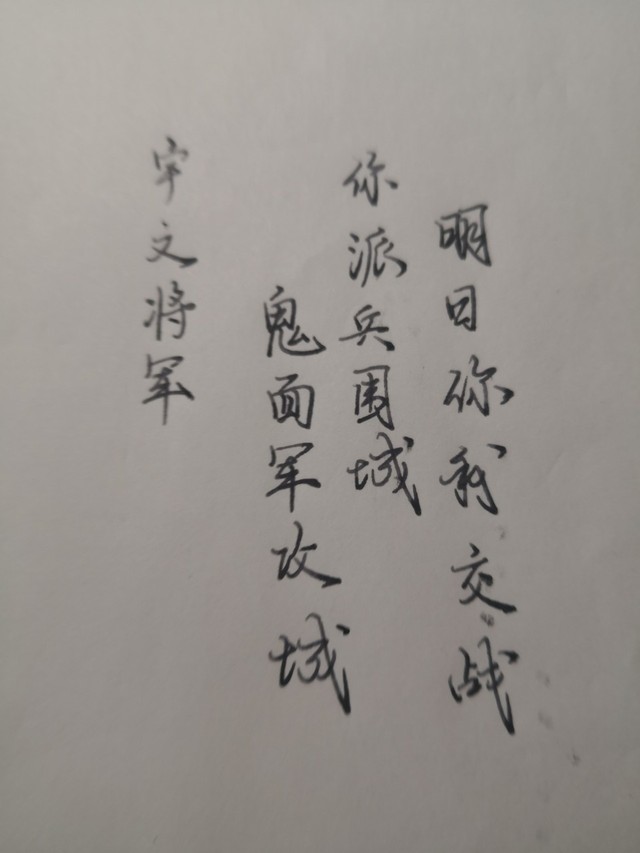 明日你我交战
你派兵围城
鬼面军攻城
宇文将军